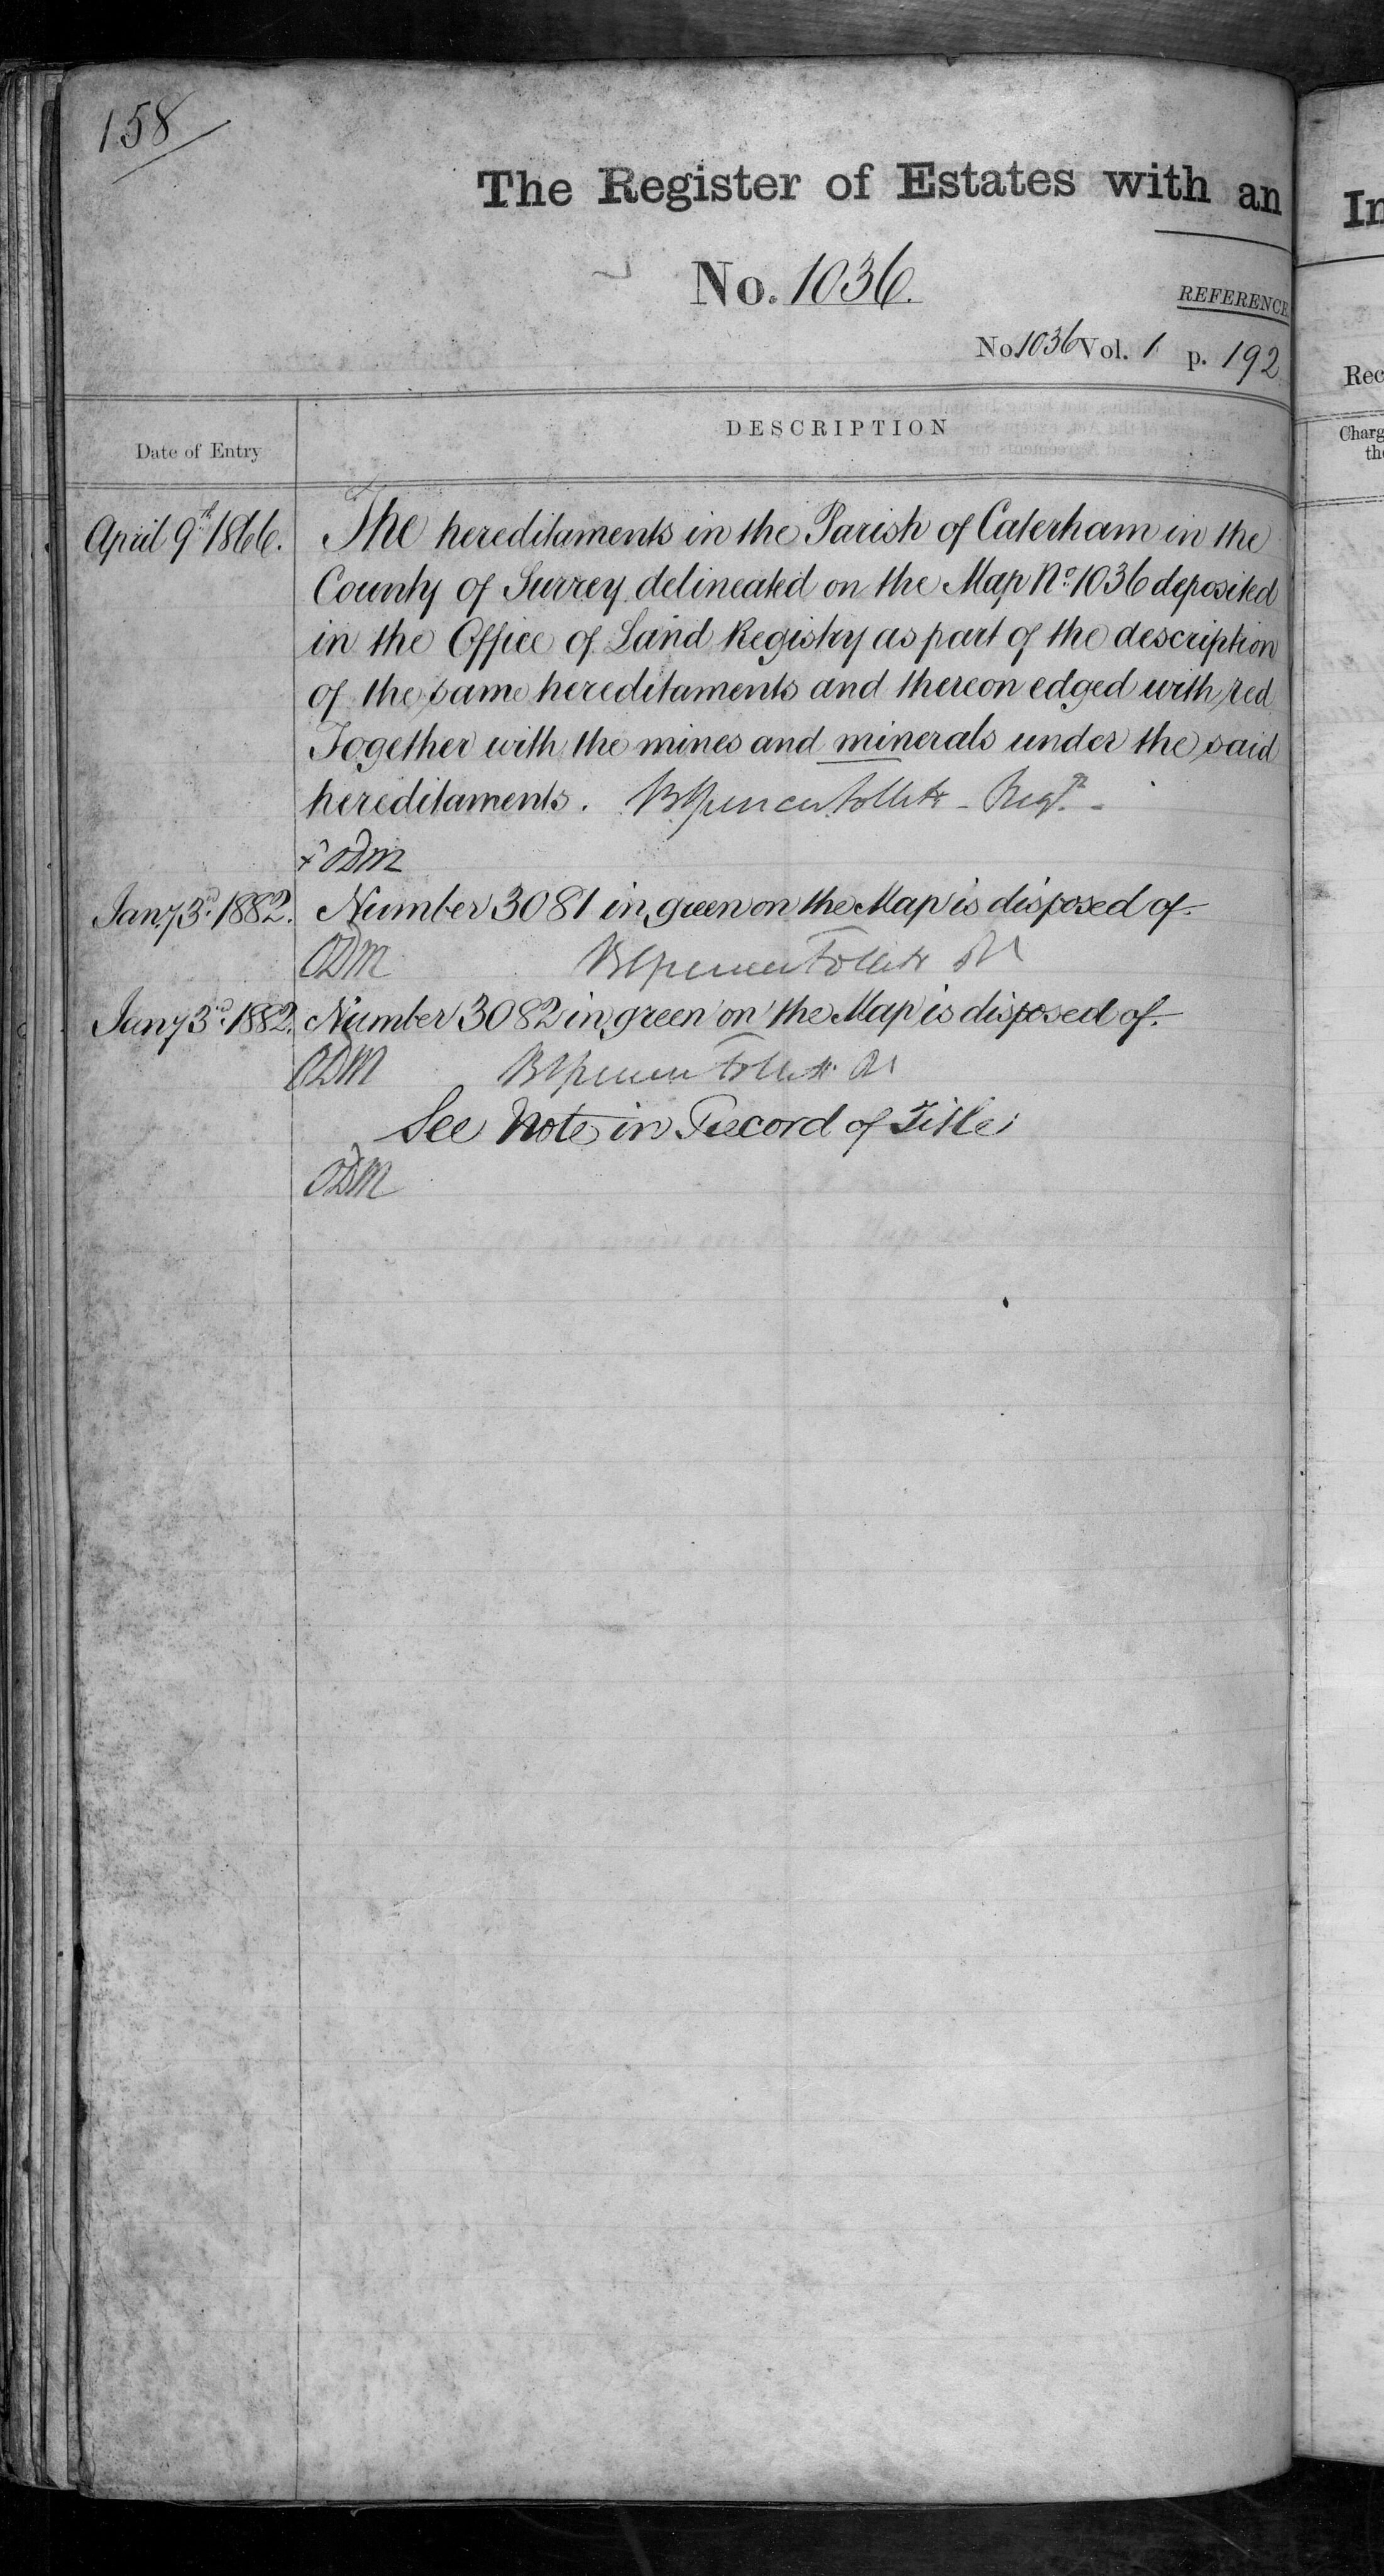 158
The Register of Estates with an
In
No. 1036.
REFERENCE
No 1036 Vol. 1 p. 192
Rec
DESCRIPTION
Date of Entry
Charg
the
April 9th 1866. The hereditaments in the Parish of Caterham in the
County of Surrey delineated on the Map No. 1036 deposited
in the Office of Land Registry as part of the description
of the same hereditaments and thereon edged with red
Together with the mines and minerals under the said
hereditaments. BSpencer Follett - Regr. -
x ODM
Jany 3rd. 1882. Number 3081 in green on the Map is disposed of.
ODM BSpencer Follett
Jany 3rd. 1882. Number 3082 in green on the Map is disposed of.
ODM BSpencer Follett
See Note in Record of Title
ODM